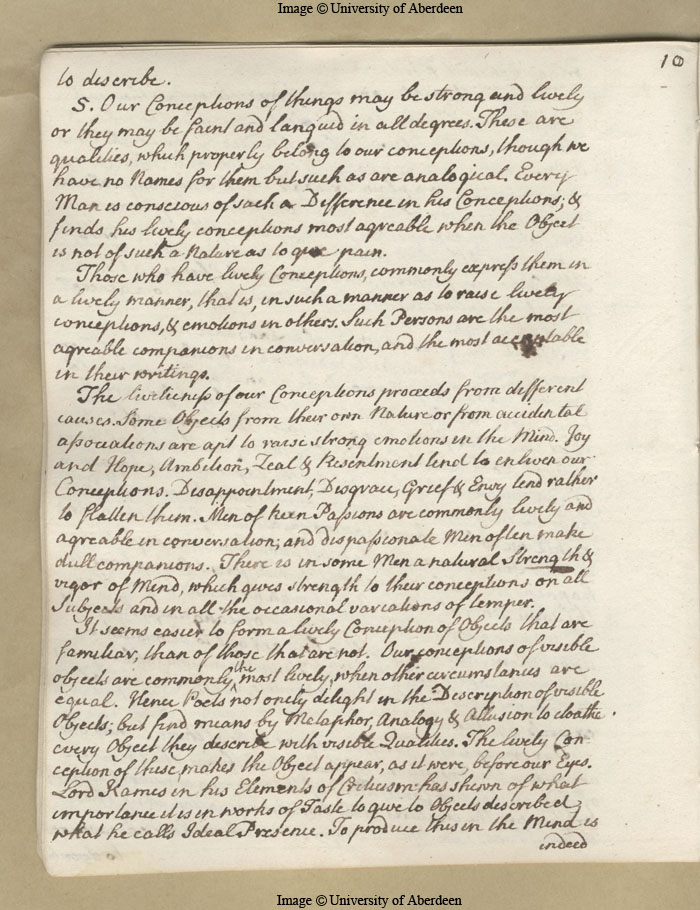 Image © University of Aberdeen
10
to discribe.
5. Our Conceptions of things may be strong and lively
or they may be faint and languid in all degrees. These are
qualities, which properly belong to our conceptions, though we
have no Names for them but such as are analogical. Every
Man is conscious of such a Difference in his Conceptions; &
finds his lively conceptions most agreable when the Object
is not of such a Nature as to give pain.
Those who have lively Conceptions, commonly express them in
a lively manner, that is, in such a manner as to raise lively
conceptions, & emotions in others. Such Persons are the most
agreable companions in conversation, and the most acceptable
in their writings.
The liveliness of our Conceptions proceeds from different
causes. Some Objects from their own Nature or from accidental
associations are apt to raise strong emotions in the Mind. Joy
and Hope, Ambition, Zeal & Resentment tend to enliven our
Conceptions. Disappointment, Disgrace, Grief & Envy tend rather
to flatten them. Men of keen Passions are commonly lively and
agreable in conversation; and dispassionate Men often make
dull companions. There is in some Men a natural Strength &
vigor of Mind, which gives strength to their conceptions on all
Subjects and in all the occasional variations of temper.
It seems easier to form a lively Conception of Objects that are
familiar, than of those that are not. Our conceptions of visible
objects are commonly the most lively, when other circumstances are
equal. Hence Poets not onely delight in the Description of visible
Objects; but find means by Metaphor, Analogy & Allusion to cloathe
every Object they describe with visible Qualities. The lively Con-
ception of these, makes the Object appear, as it were, before our Eyes.
Lord Kames in his Elements of Criticism has shewn of what
importance it is in works of Taste to give to Objects described,
what he calls Ideal Presence. To produce this in the Mind is
indeed
Image © University of Aberdeen